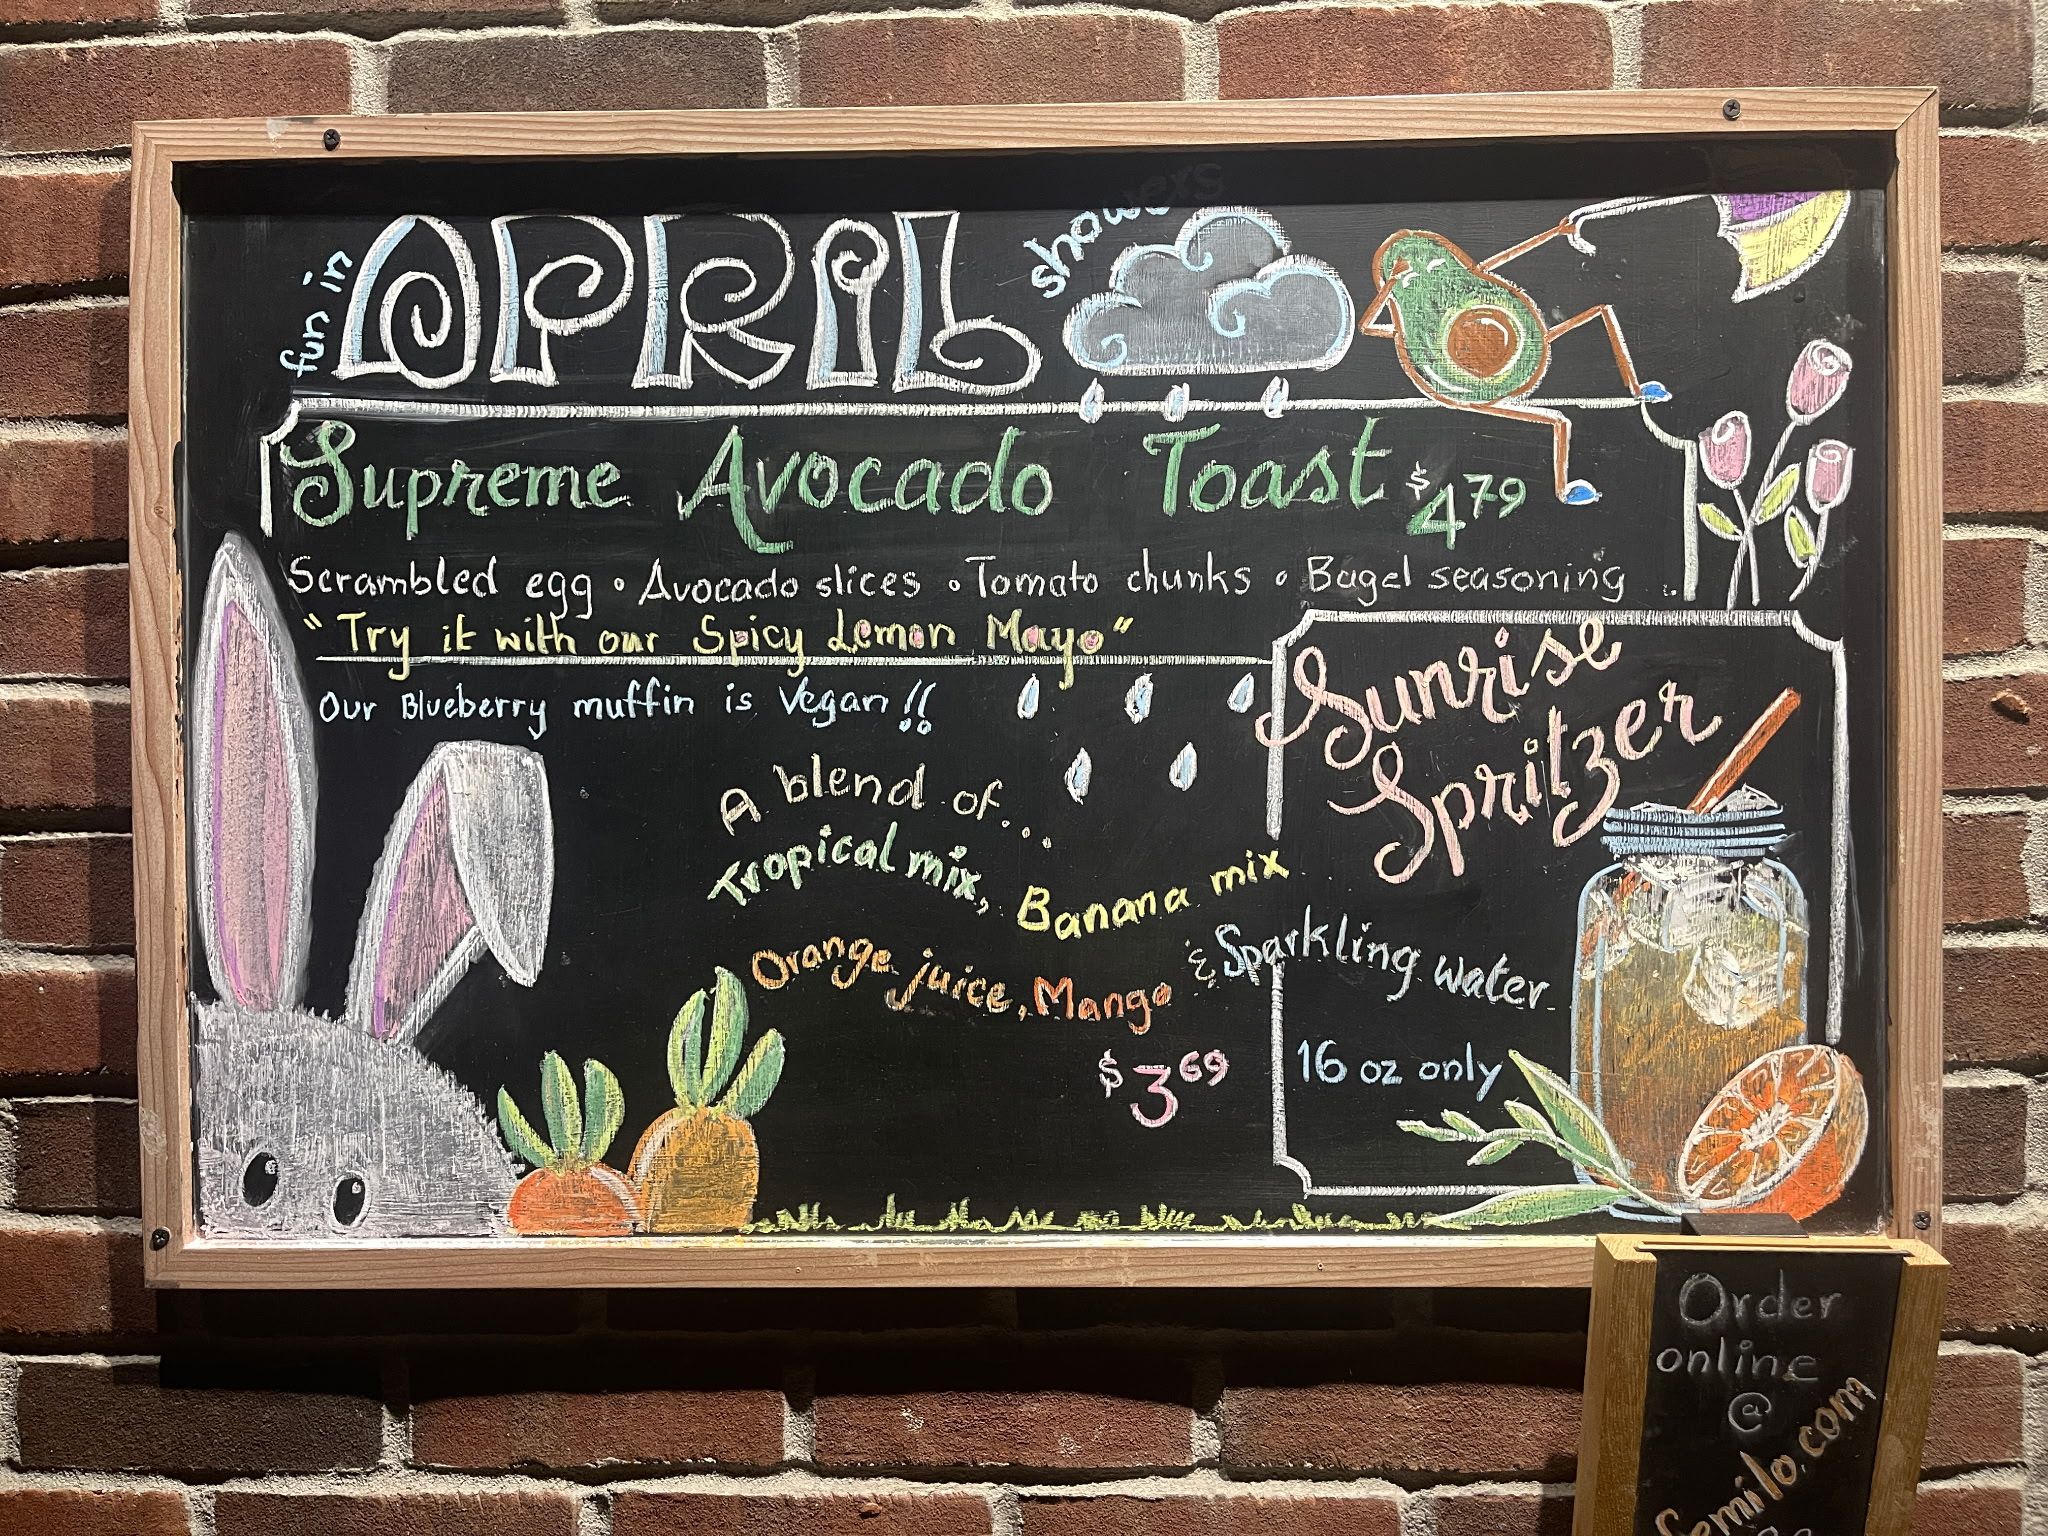 fun in APRIL showers
Supreme Avocado Toast $4.79
Scrambled egg • Avocado slices • Tomato chunks • Bagel seasoning
"Try it with our Spicy Lemon Mayo"
Our Blueberry muffin is Vegan!!
Sunrise
Spritzer
A blend of...
Tropical mix, Banana mix
Orange juice, Mango & Sparkling water
$3.69
16 oz only
Order
online
@